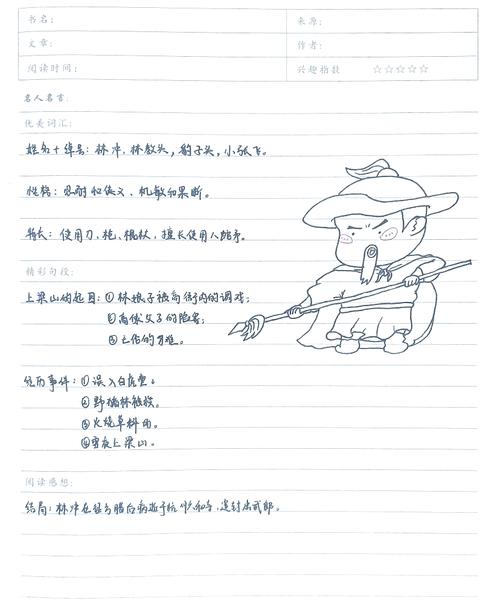 书名: 来源:
文章: 作者:
阅读时间: 兴趣指数 ☆☆☆☆☆
名人名言:
优美词汇:
姓名+绰号: 林冲, 林教头, 豹子头, 小张飞。
性格: 忍耐和侠义、机敏和果断。
特长: 使用刀、枪、棍棒, 擅长使用
精彩句段:
上梁山的起因: ①林娘子被高衙内的调戏;
②高俅父子的陷害;
③上
经历事件: ①误入白虎堂。
②野猪林
③火烧草料
④雪夜上梁山。
阅读感想:
结局: 林冲在征方腊后病逝于杭州六和寺, 追封忠武郎。